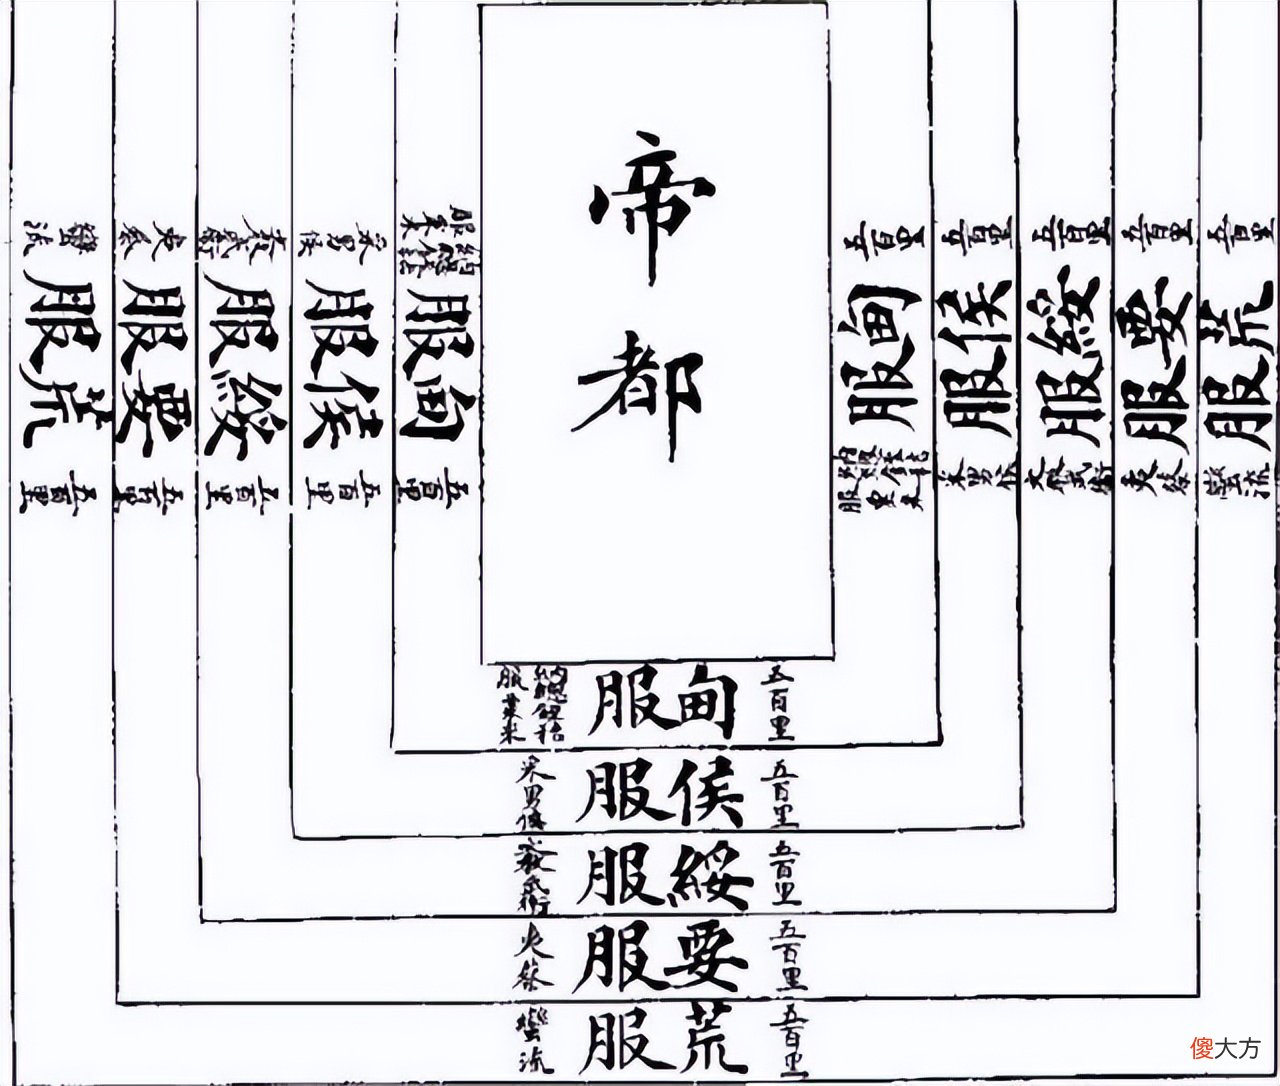 帝都
五百里
甸服
五百里
侯服
采男侯
五百里
綏服
文教武衛
五百里
要服
夷蔡
五百里
荒服
蠻流
五百里
甸服
五百里
侯服
采男侯
五百里
綏服
五百里
要服
夷蔡
五百里
荒服
蠻流
五百里
甸服
納總銍秸
服粟米
五百里
侯服
采男侯
五百里
綏服
五百里
要服
五百里
荒服
蠻流
傻大方